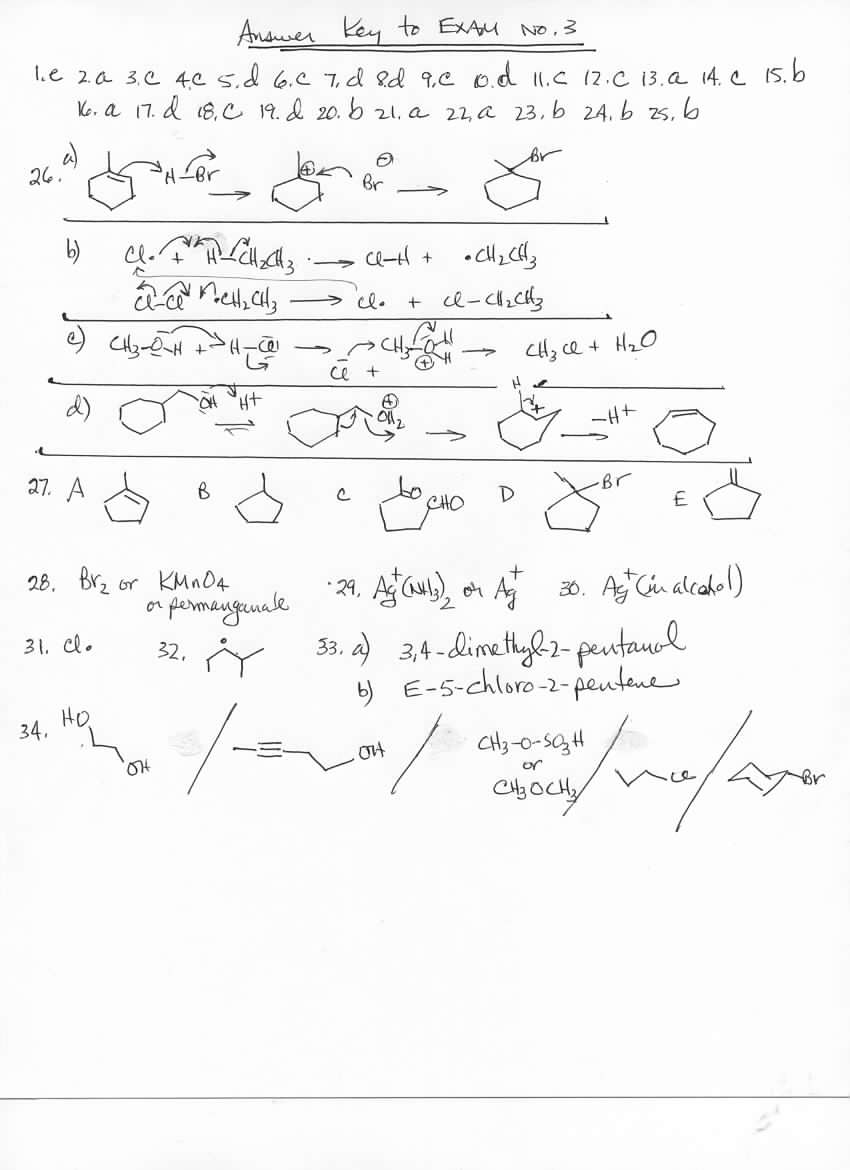 Answer Key to EXAM NO. 3
1.e 2.a 3.c 4.c 5.d 6.c 7.d 8.d 9.c 10.d 11.c 12.c 13.a 14.c 15.b
16.a 17.d 18.c 19.d 20.b 21.a 22.a 23.b 24.b 25.b
26. a) H-Br → ⊕ Br ⊖ → Br
b) Cl· + H-CH2CH3 · → Cl-H + ·CH2CH3
Cl-Cl ·CH2CH3 → Cl· + Cl-CH2CH3
c) CH3-O-H + H-Cl → Cl + CH3-O-H H ⊕ → CH3Cl + H2O
d) OH H+ ⇌ ⊕ OH2 → H + -H+ →
27. A B C O CHO D Br E
28. Br2 or KMnO4 · 29. Ag+(NH3)2 or Ag+ 30. Ag+(in alcohol)
or permanganate
31. Cl· 32. · 33. a) 3,4-dimethyl-2-pentanol
b) E-5-chloro-2-pentene
34. HO OH / ≡ OH / CH3-O-SO3H or CH3OCH3 / Cl / Br